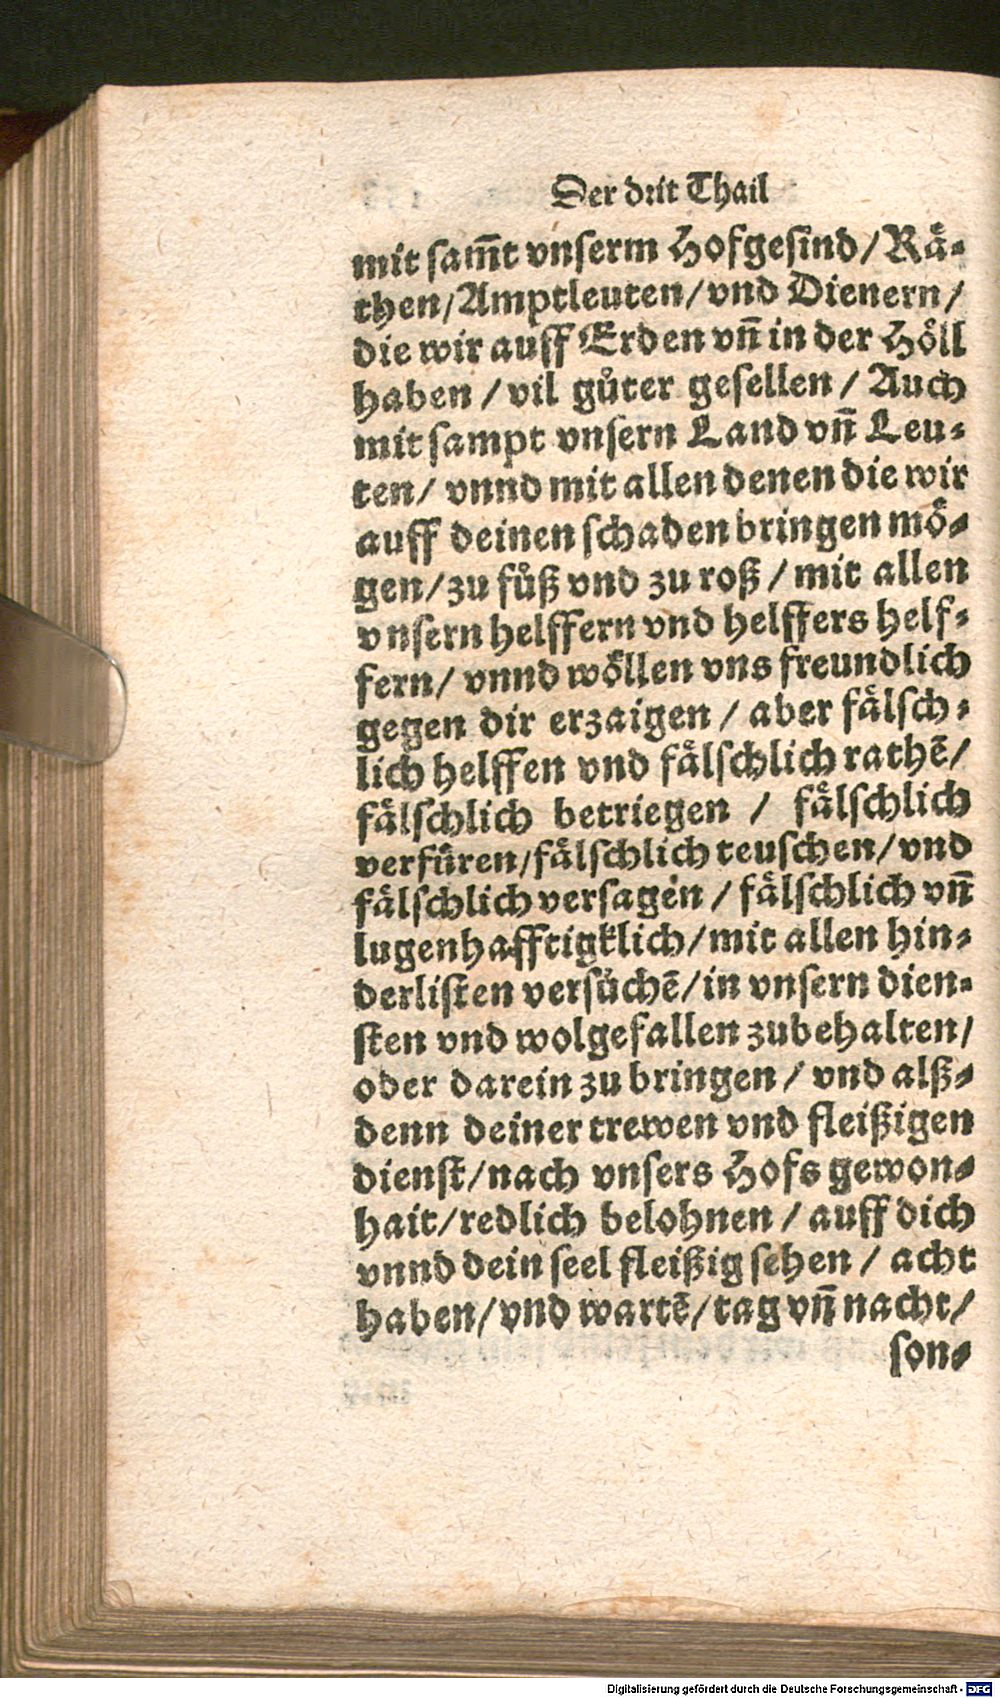 Der drit Thail
mit sam̃t vnserm Hofgesind/Raͤ⸗
then/Amptleuten/vnd Dienern/
die wir auff Erden vñ in der Hoͤll
haben /vil guͦter gesellen / Auch
mit sampt vnsern Land vñ Leu⸗
ten/ vnnd mit allen denen die wir
auff deinen schaden bringen moͤ⸗
gen/zu fuͦß vnd zu roß / mit allen
vnsern helffern vnd helffers helf⸗
fern/ vnnd woͤllen vns freundlich
gegen dir erzaigen / aber faͤlsch⸗
lich helffen vnd faͤlschlich rathẽ/
faͤlschlich betriegen / faͤlschlich
verfuͤren/faͤlschlich teuschen/vnd
faͤlschlich versagen / faͤlschlich vñ
lugenhafftigklich/mit allen hin⸗
derlisten versuͦchẽ/in vnsern dien⸗
sten vnd wolgefallen zubehalten/
oder darein zu bringen / vnd alß⸗
denn deiner trewen vnd fleißigen
dienst/nach vnsers Hofs gewon⸗
hait/redlich belohnen / auff dich
vnnd dein seel fleißig sehen / acht
haben/vnd wartẽ/tag vñ nacht/
son⸗
Digitalisierung gefördert durch die Deutsche Forschungsgemeinschaft - DFG